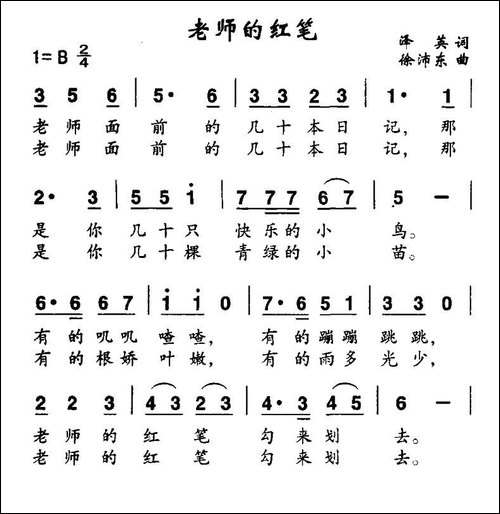 老师的红笔
1=B 2/4
泽英词
徐沛东曲
3 5 6 | 5· 6 | 3 3 2 3 | 1· 1 |
老师面前的几十本日记，那
老师面前的几十本日记，那
2· 3 | 5 5 i | 7 7 7 6 7 | 5 — |
是你几十只快乐的小鸟。
是你几十棵青绿的小苗。
6· 6 6 7 | i i 0 | 7· 6 5 1 | 3 3 0 |
有的叽叽喳喳，有的蹦蹦跳跳，
有的根娇叶嫩，有的雨多光少，
2 2 3 | 4 3 2 3 | 2 2 2 | 4· 3 4 5 | 6 — |
老师的红笔勾来划去。
老师的红笔勾来划去。